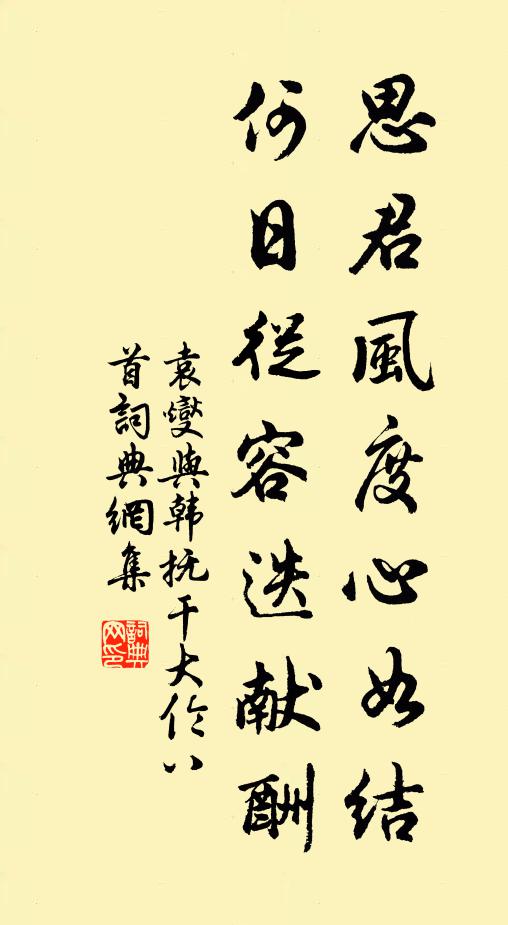 思君風度心如结
何日從容迭献酬
袁燮與韩抚干大伦八
首詞典網集
詞典
网印